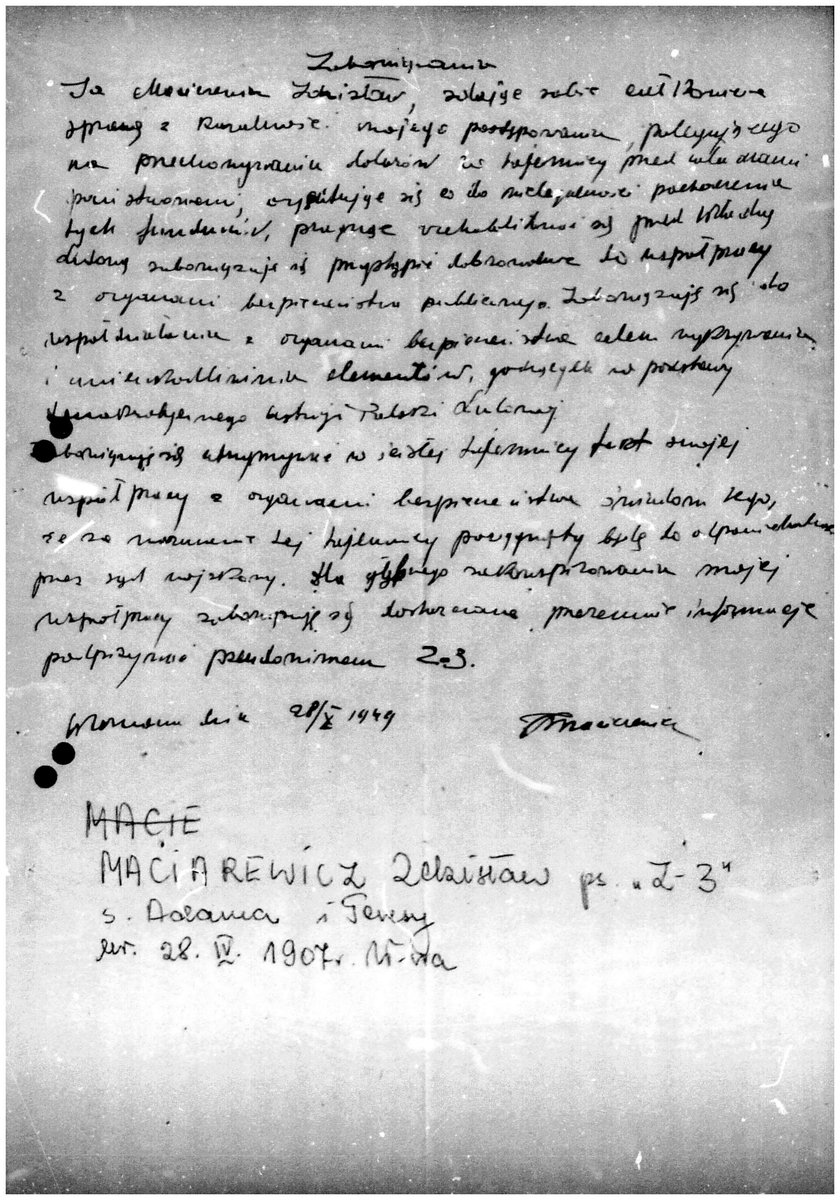 Zobowiązanie
Ja Macierewicz Zdzisław, zdając sobie całkowicie
sprawę z karalności mojego postępowania, polegającego
na przechowywaniu dolarów w tajemnicy przed władzami
państwowemi, orientując się co do nielegalności pochodzenia
tych funduszów, pragnąc rehabilitować się przed Władzą
Ludową zobowiązuję się przystąpić dobrowolnie do współpracy
z organami bezpieczeństwa publicznego. Zobowiązuję się do
współdziałania z organami bezpieczeństwa celem wykrywania
i unieszkodliwienia elementów, godzących w podstawy
demokratycznego ustroju Polski Ludowej
Zobowiązuję się utrzymywać w ścisłej tajemnicy fakt mojej
współpracy z organami bezpieczeństwa świadom tego,
że za naruszenie tej tajemnicy pociągnięty będę do odpowiedzialności
przez sąd wojskowy. Dla głębszego zakonspirowania mojej
współpracy zobowiązuję się dostarczane przezemnie informacje
podpisywać pseudonimem Z-3.
Warszawa dnia 28/X 1949
MACIE
MACIAREWICZ Zdzisław ps. „Z-3"
s. Adama i Teresy
ur. 28. IV. 1907 r. W-wa